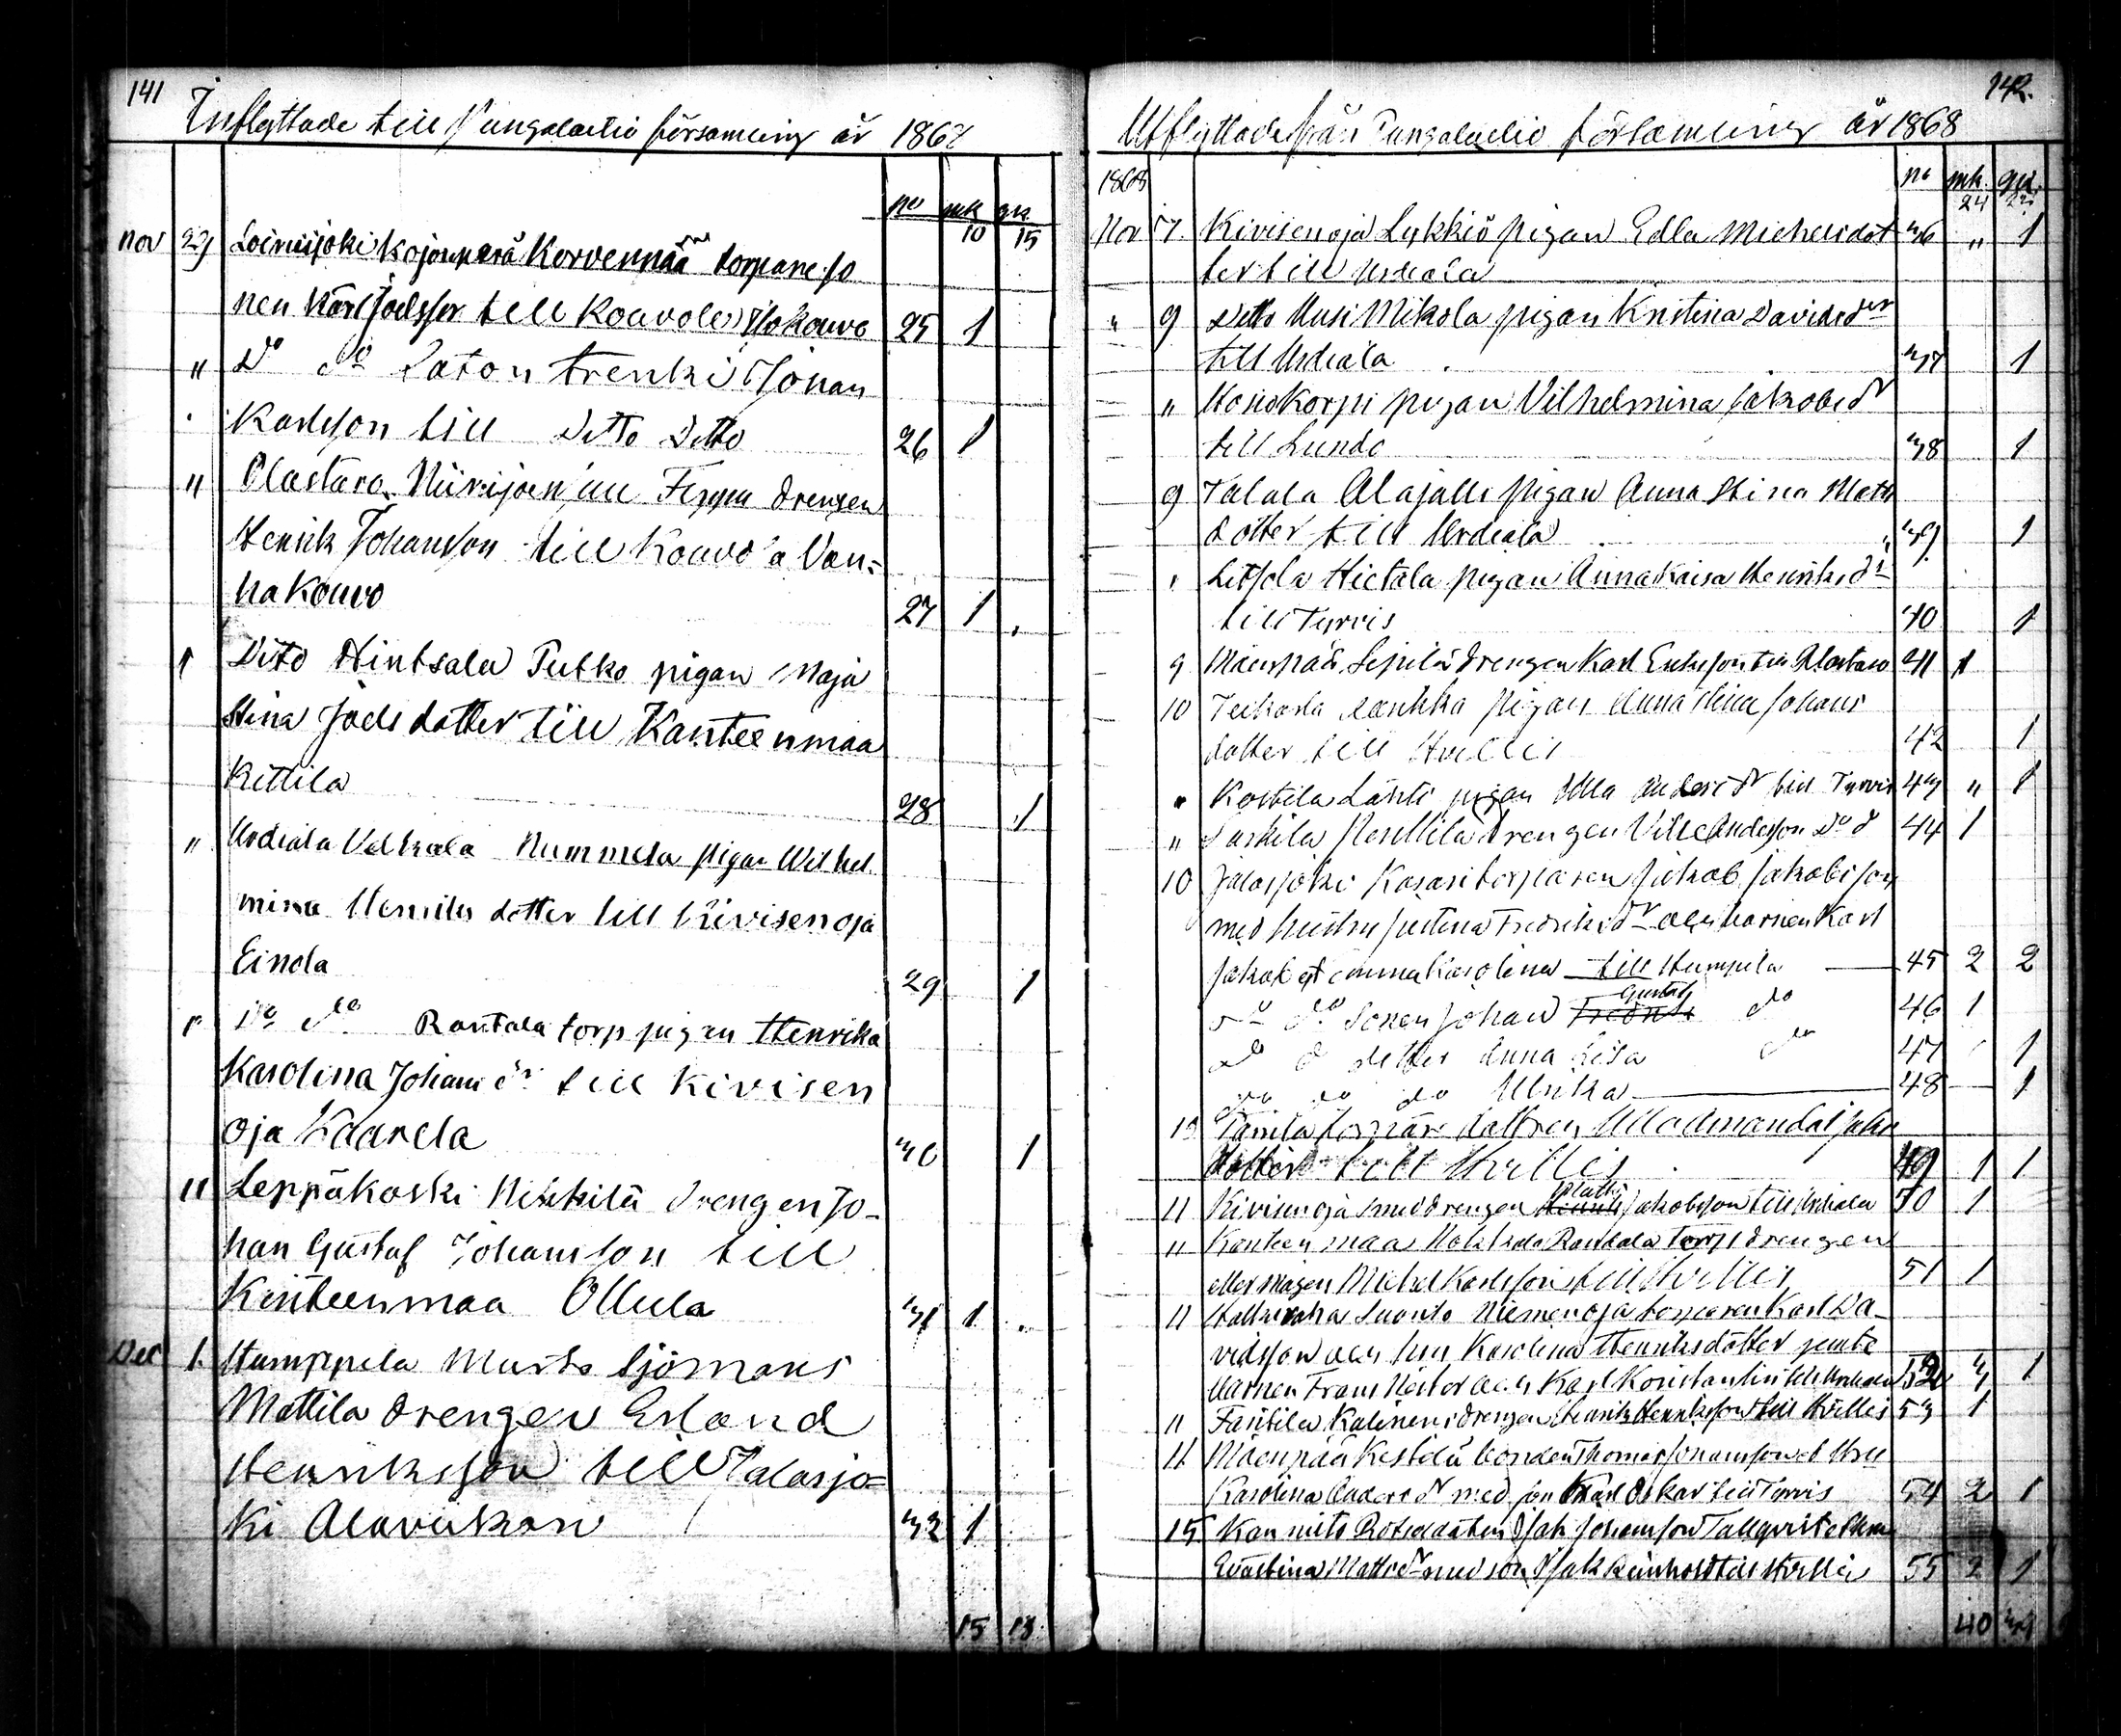 141
Inflyttade till Pungalaitio församling år 1868
no mk qk
10 15
Nov 29 Loimijoki Kojonperä Korvenmää torpare so
nen Karl Joelsson till Kouvola Isokouvo 25 1
" Do do Laton trenki Johan
Karlsson till Ditto Ditto 26 1
" Alastaro Niinijoen drengen
Henrik Johansson till Kouvola Van-
hakouvo 27 1
" Dito Hintsala Putko pigan Maja
Stina Joelsdotter till Kanteenmaa
Kittilä 28 1
" Urdiala Velkala Nummela pigan Wilhel
mina Henriksdotter till Kivisenoja
Einola 29 1
" Do do Rantala torp pigan Henrika
Karolina Johansdr till Kivisen
oja Kaarela 30 1
" Leppäkoski Nikkilä drengen Jo-
han Gustaf Johansson till
Kanteenmaa Ollula 31 1
Dec 1. Humppila Murto Sjömans
Mattila drengen Erland
Henriksson till Jalasjo-
ki Alavirkon 32 1
15 18
142.
Utflyttade från Pungalaitio församling år 1868
1868 no mk. qk.
24 23
Nov 7. Kivisenoja Lykkiö pigan Edla Michelsdot 36 " 1
ter till Urdiala
" 9 Ditto Uusi Mikola pigan Kristina Davidsdr
till Urdiala 37 1
" Honokorpi pigan Vilhelmina Jakobsdr
till Lundo 38 1
9 Talala Alajalli pigan Anna Stina Matts
dotter till Urdiala 39 1
" Hietala pigan Anna Kaisa Henriksdr
till Tyrvis 40 1
9 Mäenpää Sipilä drengen Karl till Alastaro 41 1
10 pigan Anna Stina Johans
dotter till Hvittis 42 1
" Kostila Lähti pigan Ulla Andersdr till Tyrvis 43 " 1
" drengen Ville Andersson Do d 44 1
10 Jalasjoki torparen Jakob Jakobsson
med hustru Justina Fredriksdr och barnen Karl
Jakob et Emma Karolina till Humpila 45 2 2
do do Sonen Johan Gustaf do 46 1
do d dotter Anna Lisa do 47 1
do do do Ulrika 48 1
dottren Jako
dotter till Hvittis 49 1 1
11 Kivisenoja smeddrengen Matts Jakobsson till Urdiala 50 1
" Kanteenmaa Rantala torp drengen
eller mågen Michel Karlsson till Hvittis 51 1
11 Suonto Niemenoja torparen Karl Da-
vidsson och hu Karolina Henriksdotter jemte
barnen Frans Nestor och Karl Konstantin till Urdiala 52 3 1
" drengen Henrik Henriksson till Hvittis 53 1
11 Mäenpää Kestilä bonden Thomas Johansson et Hru
Karolina Andersdr med son Karl Oskar till Tyrvis 54 2 1
15 Isak Johansson Tallqvist
Mattsdr med son Isak Reinhold till Hvittis 55 2 1
40 34